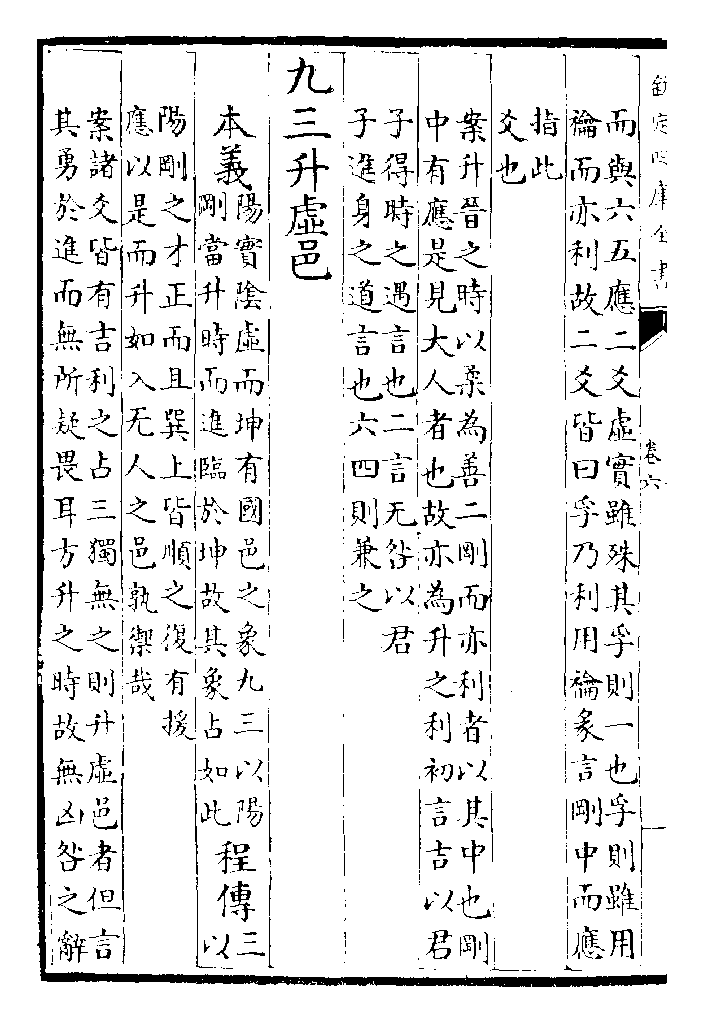 欽定四庫全書
卷六
而與六五應二爻虛實雖殊其孚則一也孚則雖用
禴而亦利故二爻皆曰孚乃利用禴彖言剛中而應
指此
爻也
案升晉之時以柔為善二剛而亦利者以其中也剛
中有應是見大人者也故亦為升之利初言吉以君
子得時之遇言也二言无咎以君
子進身之道言也六四則兼之
九三升虛邑
本義
陽實陰虛而坤有國邑之象九三以陽
剛當升時而進臨於坤故其象占如此
程傳
三
以
陽剛之才正而且巽上皆順之復有援
應以是而升如入无人之邑孰禦哉
案諸爻皆有吉利之占三獨無之則升虛邑者但言
其勇於進而無所疑畏耳方升之時故無凶咎之辭